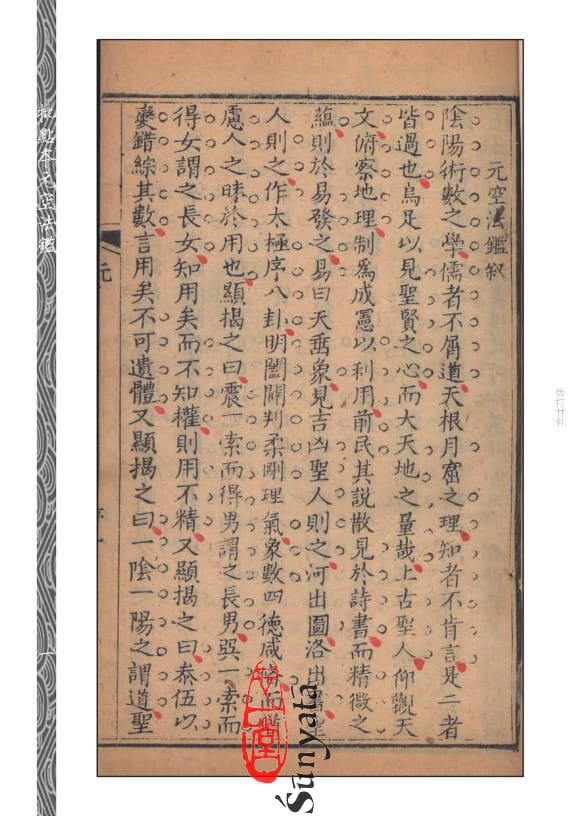 元空法鑑叙
陰陽術數之學儒者不屑道天根月窟之理知者不肯言是二者
皆過也烏足以見聖賢之心而大天地之量哉上古聖人仰觀天
文俯察地理制爲成憲以利用前民其説散見於詩書而精微之
蘊則於易發之易曰天垂象見吉凶聖人則之河出圖洛出書聖
人則之作太極序八卦明闔闢判柔剛理氣象數四德咸備而猶
慮人之昧於用也顯揭之曰震一索而得男謂之長男巽一索而
得女謂之長女知用矣而不知權則用不精又顯揭之曰叅伍以
變錯綜其數言用矣不可遺體又顯揭之曰一陰一陽之謂道聖
元
序
一
批點本元空法鑑
一
版权材料
Śūnyatā